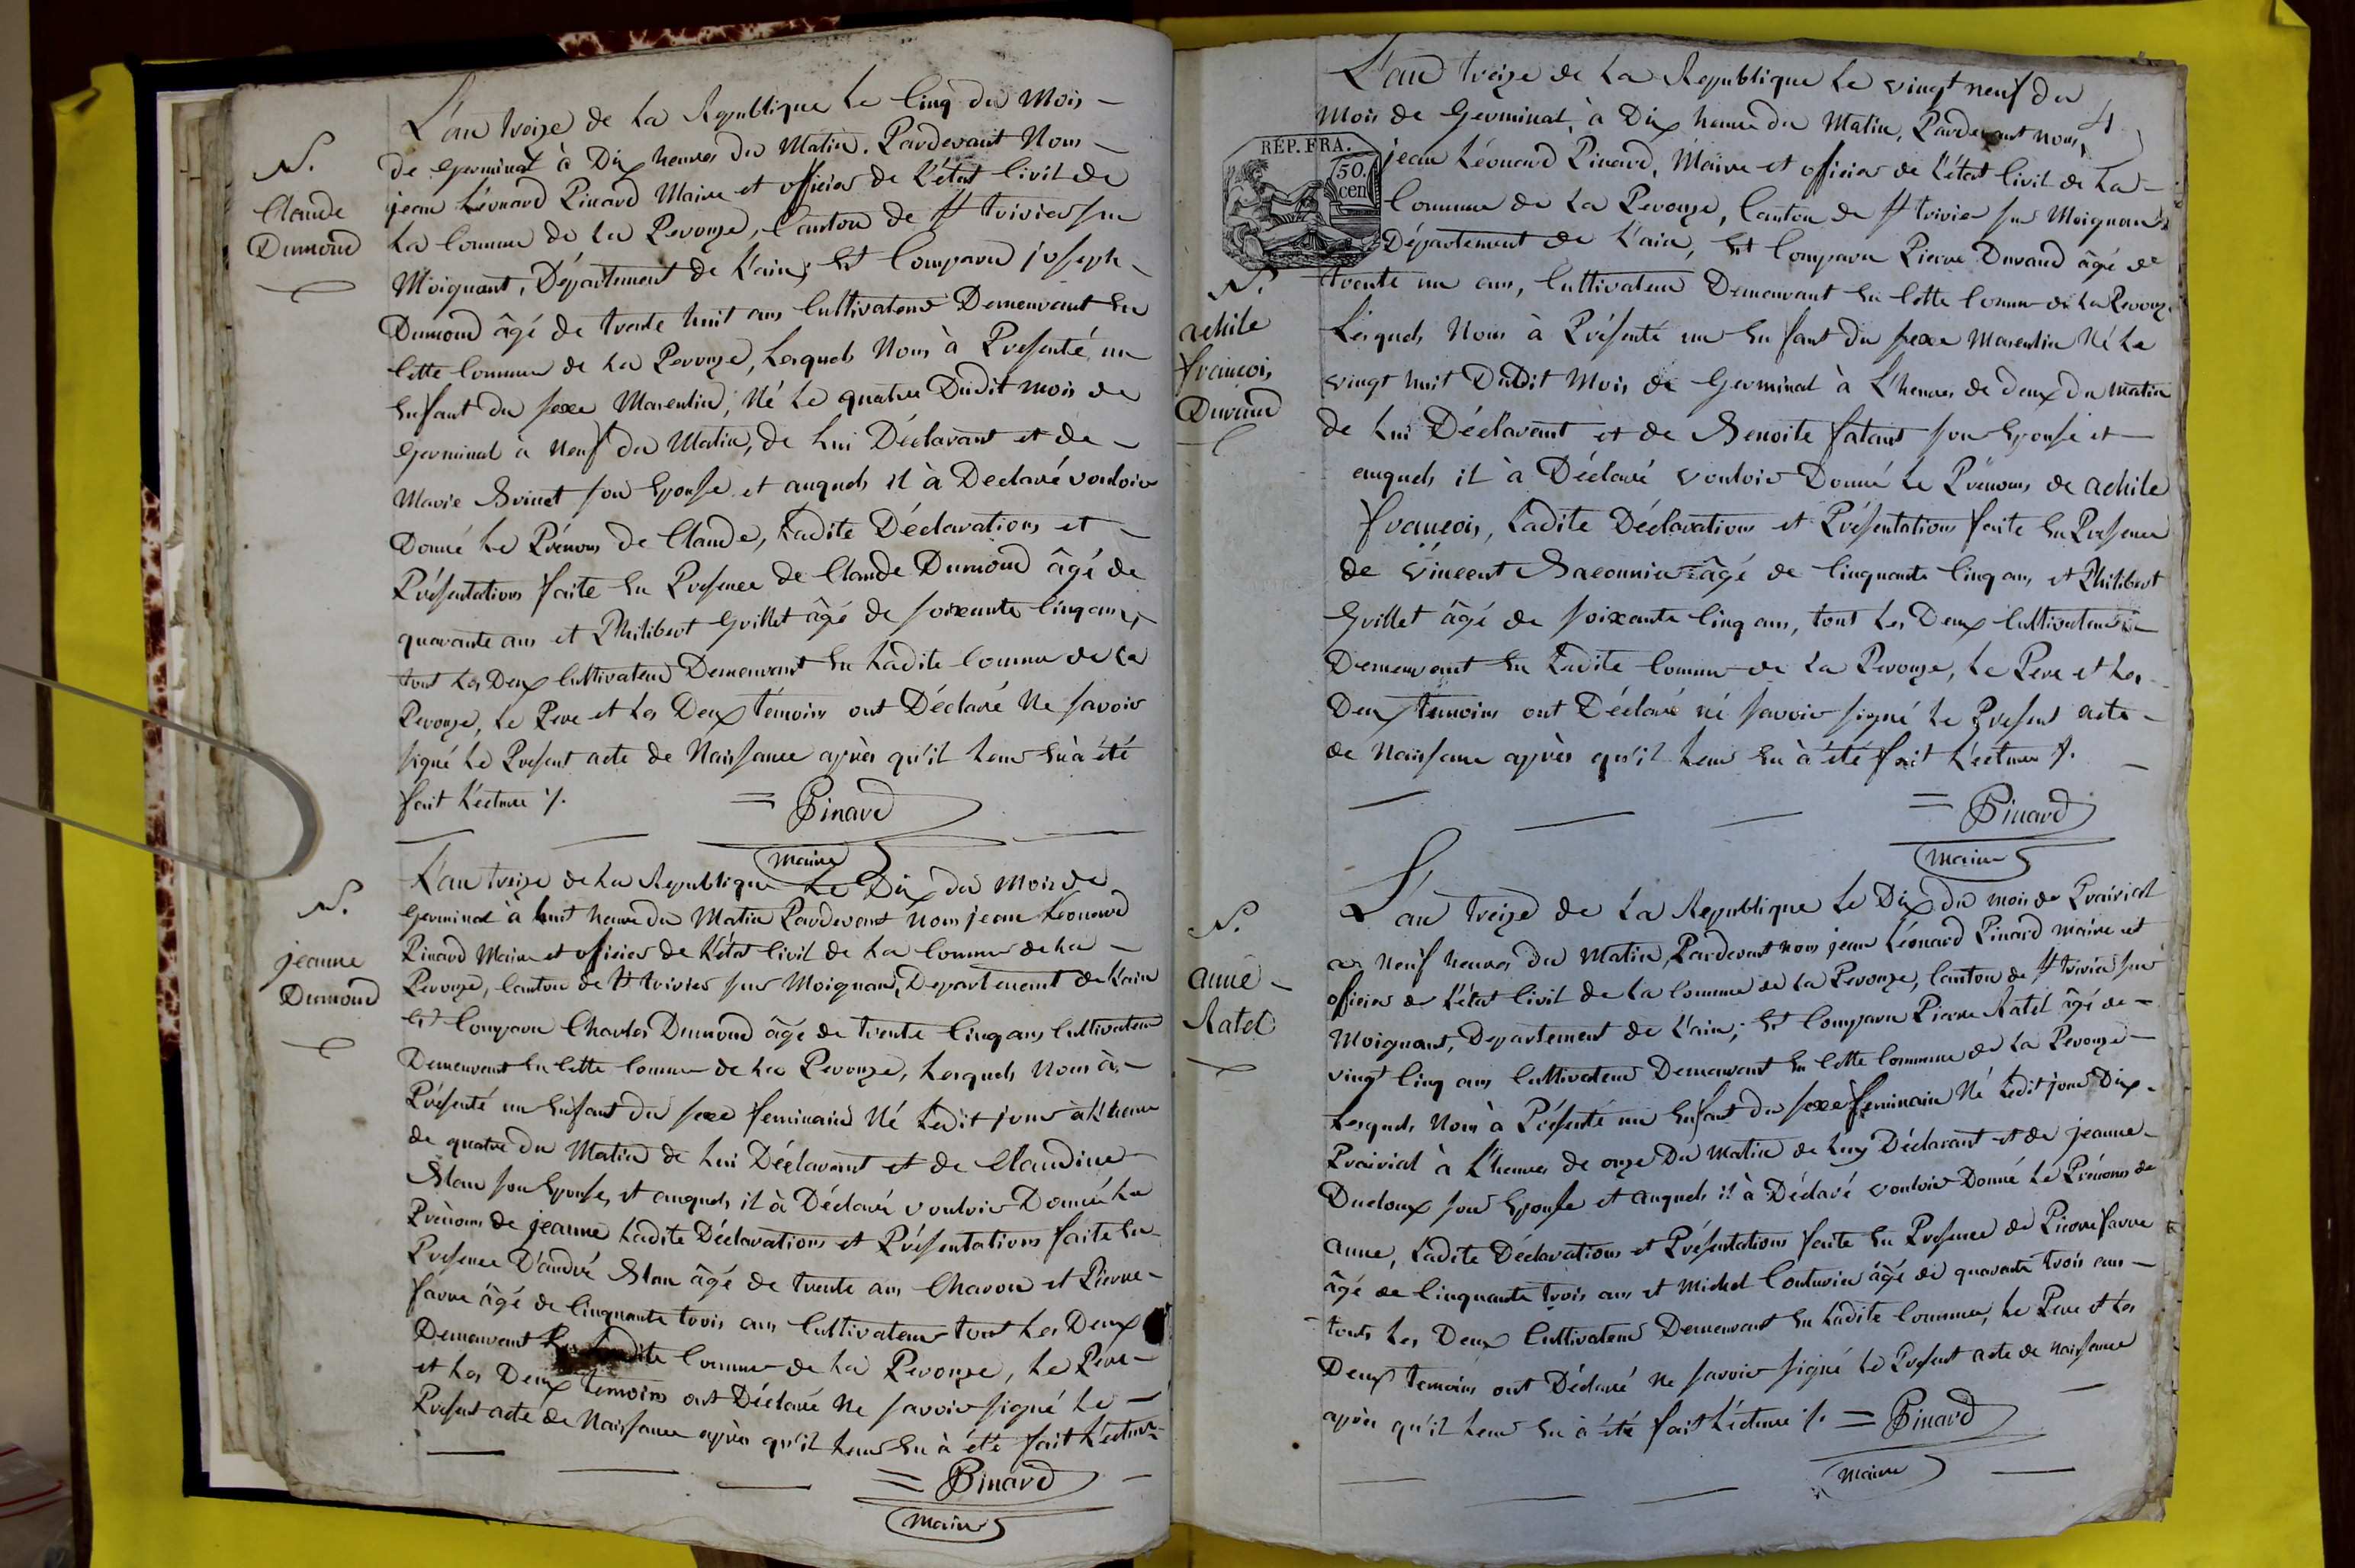 L'an treize de La Republique Le Cinq du Mois
de germinal à Dix heures du Matin. Pardevant Nous
jean Léonard Pinard Maire et officier de L'état Civil de
La Commune de La Perouze, Canton de St trivier sur
Moignant, Département de L'ain; Est Comparu joseph
Dumond âgé de trente huit ans Cultivateur Demeurant En
Cette Commune de La Perouze, Lesquels Nous à Présenté un
Enfant du sexe Masculin, Né Le quatre Dudit mois de
Germinal à Neuf du Matin, de Lui Déclarant et de
Marie son Epouse et auquels il à Declaré vouloir
Donné Le Prénoms de Claude, Ladite Déclarations et
Présentations faite En Presence de Claude Dumond âgé de
quarante ans et Philibert Grillet âgé de soixante Cinq ans,
tout Les Deux Cultivateur Demeurant En Ladite Commune de La
Perouze, Le Pere et Les Deux témoins ont Déclaré Ne savoir
signé Le Present acte de Naissance après qu'il Leur En à été
fait Lécture ./.
= Pinard
maire
N.
Claude
Dumond
L'an treize de La Republique Le Dix du Mois de
Germinal à huit heure du Matin Pardevant Nous jean Léonard
Pinard Maire et officier de L'état Civil de La Commune de La
Perouze, Canton de St trivier sur Moignant, Departement de L'ain
Est Comparu Charles Dumond âgé de trente Cinq ans Cultivateur
Demeurant En Cette Commune de La Perouze, Lesquels Nous à
Présenté un Enfant du sexe feminain Né Ledit jour à L'heure
de quatre du Matin de Lui Déclarant et de Claudine
son Epouse, et auquels il à Déclaré vouloir Donné Le
Prénoms de jeanne Ladite Déclarations et Présentations faite En
Presence D'andré âgé de trente ans Charon et Pierre
favre âgé de Cinquante trois ans Cultivateur tout Les Deux
Demeurant En Ladite Commune de La Perouze, Le Pere
et Les Deux temoins ont Déclaré Ne savoir signé Le
Present acte de Naissance après qu'il Leur En à été fait Lécture
= Pinard
maire
N.
jeanne
Dumond
4
L'an treize de La Republique Le vingt neuf du
Mois de Germinal, à Dix heure du Matin, Pardevant nous,
jean Léonard Pinard, Maire et officier de L'état Civil de La
Commune de La Perouze, Canton de St trivier sur Moignant
Département de L'ain, Est Comparu Pierre Durand âgé de
trente un ans, Cultivateur Demeurant En Cette Commune de La Perouze
Lesquels Nous à Présenté un Enfant du sexe Masculin Né Le
vingt huit Dudit Mois de Germinal à L'heures de deux du matin
de Lui Déclarant et de Benoite son Epouse et
auquels il à Déclaré vouloir Donné Le Prénoms de achile
françois, Ladite Déclarations et Présentations faite En Presence
de Vincent âgé de Cinquante Cinq ans, et Philibert
Grillet âgé de soixante Cinq ans, tout Les Deux Cultivateur
Demeurant En Ladite Commune de La Perouze, Le Pere et Les
Deux témoins ont Déclaré né savoir signé Le Present acte
de Naissance après qu'il Leur En à été fait Lécture ./.
= Pinard
maire
RÉP. FRA.
50.
cen
N.
achile
françois
Durand
L'an treize de La Republique Le Dix du mois de Prairial
a Neuf heures du Matin, Pardevant nous jean Léonard Pinard maire et
officier de L'état Civil de La Commune de La Perouze, Canton de St trivier sur
Moignant, Departement de L'ain; Est Comparu Pierre Ratel âgé de
vingt Cinq ans Cultivateur Demeurant En Cette Commune de La Perouze
Lesquels Nous à Présenté un Enfant du sexe feminain Né Ledit jour Dix
Prairial à L'heures de onze Du Matin de Luy Déclarant et de jeanne
Ducloux son Epouse et auquels il à Déclaré vouloir Donné Le Prénoms de
anne, Ladite Déclarations et Présentations faite En Presence de Pierre favre
âgé de Cinquante trois ans et Michel Couturier âgé de quarante trois ans
touts Les Deux Cultivateur Demeurant En Ladite Commune, Le Pere et Les
Deux temoins ont Déclaré Ne savoir signé Le Present acte de Naissance
après qu'il Leur En à été fait Lécture ./. = Pinard
maire
N.
anne
Ratel